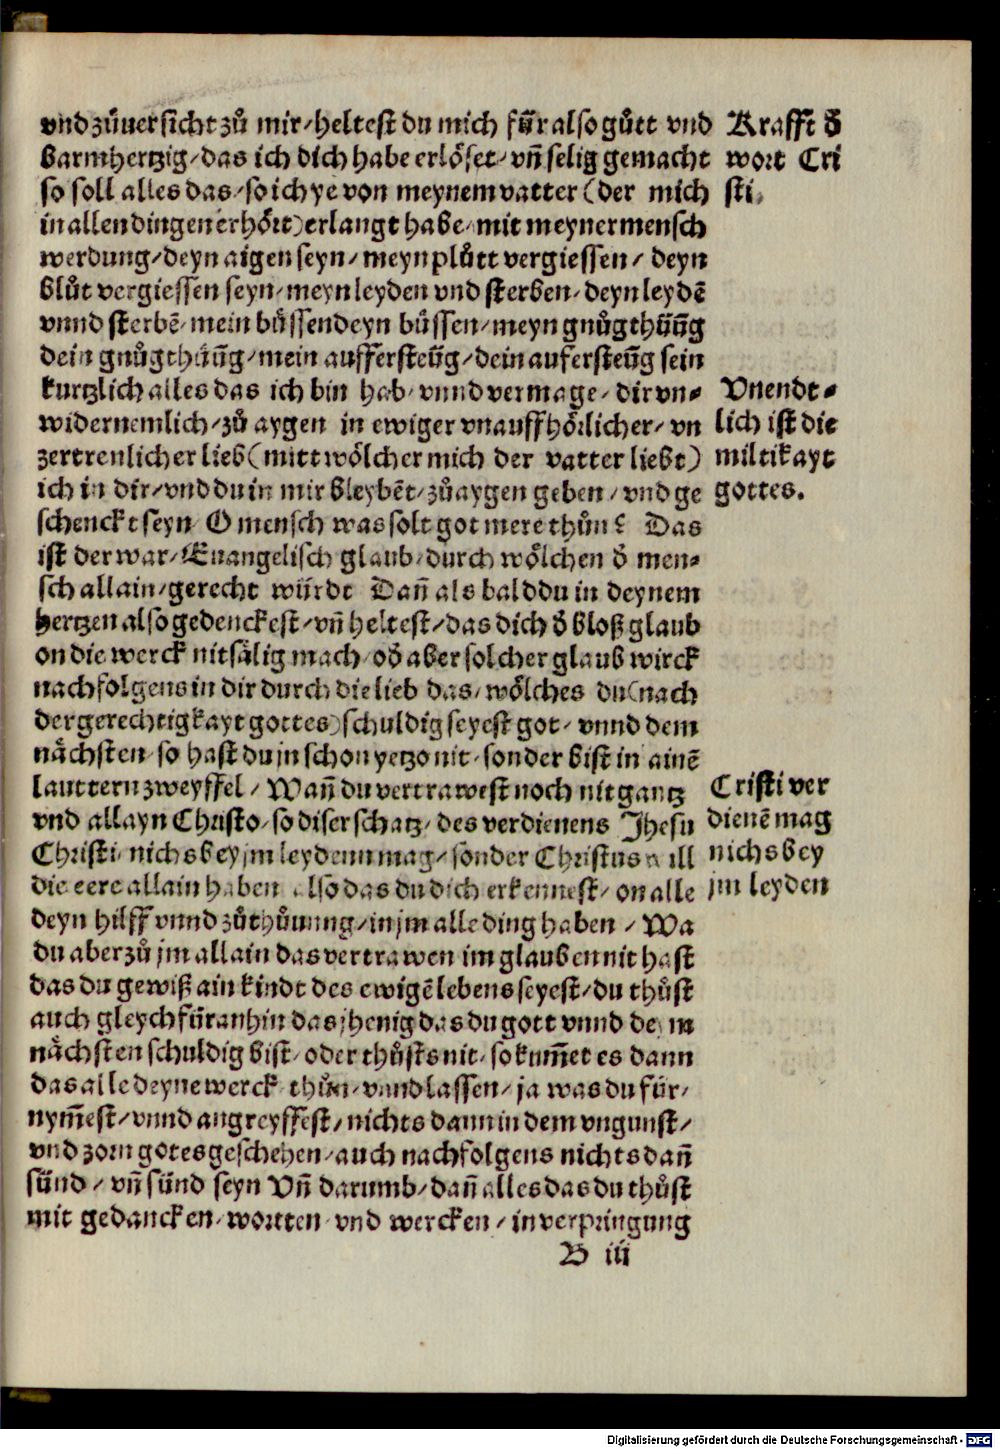 vnd zůuersicht zů mir/heltest du mich für also gůtt vnd
barmhertzig/das ich dich habe erlöset/vñ selig gemacht
so soll alles das/so ich ye von meynem vatter (der mich
in allen dingen erhört) erlangt habe/mit meyner mensch
werdung/deyn aigen seyn/meyn plůtt vergiessen/deyn
blůt vergiessen seyn/meyn leyden vnd sterben/deyn leydē
vnnd sterbē/mein büssen deyn büssen/meyn gnůgthüūg
dein gnůgthüūg/mein aufferstēug/dein auferstēug sein
kurtzlich alles das ich bin hab/vnnd vermage/dir vn⸗
widernemlich/zů aygen in ewiger vnauffhörlicher/vn
zertrenlicher lieb (mitt wölcher mich der vatter liebt)
ich in dir/vnd du in mir bleybēt/zů aygen geben/vnd ge
schenckt seyn O mensch was solt got mere thůn? Das
ist der war/Euangelisch glaub/durch wölchen ð men⸗
sch allain/gerecht würdt Dañ als bald du in deynem
hertzen also gedenckest/vñ heltest/das dich ð bloß glaub
on die werck nit sälig mach/oð aber solcher glaub wirck
nachfolgens in dir durch die lieb das/wölches du (nach
der gerechtigkayt gottes) schuldig seyest got/vnnd dem
nächsten/so hast du jn schon yetzo nit/sonder bist in ainē
lauttern zweyffel/Wañ du vertrawest noch nit gantz
vnd allayn Christo/so diser schatz/des verdienens Jhesu
Christi/nichs bey jm leydenn mag/sonder Christus will
die eere allain haben also das du dich erkennest/on alle
deyn hilff vnnd zůthůnung/in jm alle ding haben/Wa
du aber zů jm allain das vertrawen im glauben nit hast
das du gewiß ain kindt des ewigē lebens seyest/du thůst
auch gleych für anhin das jhenig das du gott vnnd dem
nächsten schuldig bist/oder thůsts nit/so kum̄et es dann
das alle deyne werck thůn/vnnd lassen/ja was du für/
nym̄est/vnnd angreyffest/nichts dann in dem vngunst/
vnd zorn gotes geschehen/auch nachfolgens nichts dañ
sünd/vñ sünd seyn Vñ darumb/dañ alles das du thůst
mit gedancken/wortten vnd wercken/in verpringung
B iii
Krafft ð
wort Cri
sti,
Vnendt⸗
lich ist die
miltikayt
gottes.
Cristi ver
dienē mag
nichs bey
jm leyden
Digitalisierung gefördert durch die Deutsche Forschungsgemeinschaft - DFG